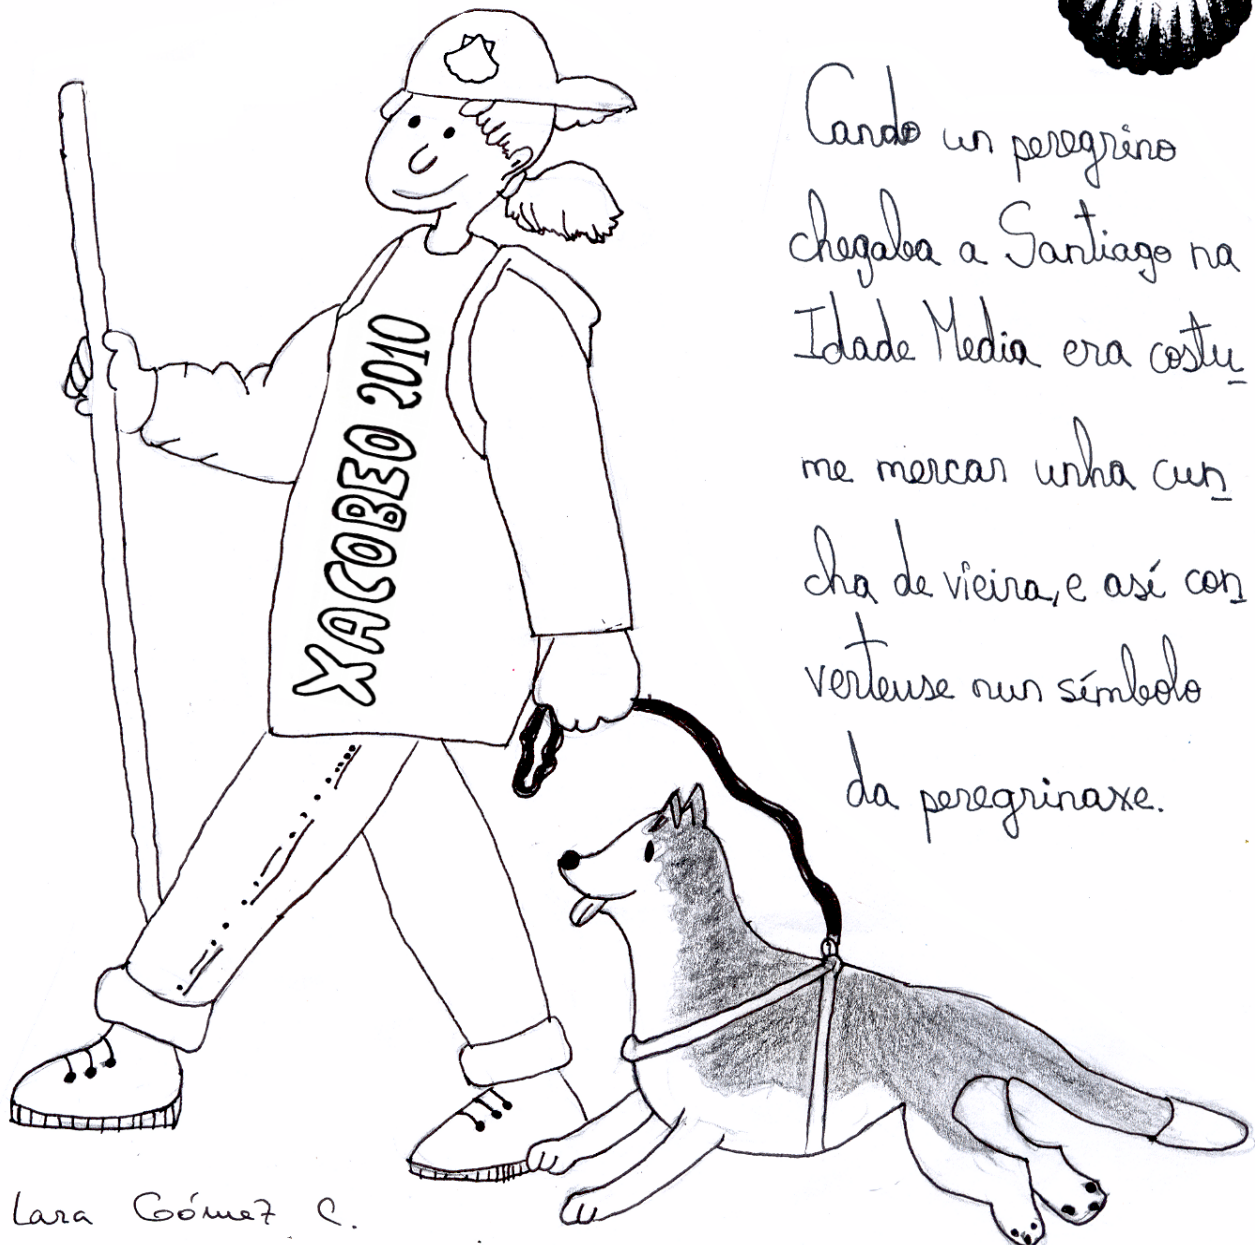 Cando un peregrino
chegaba a Santiago na
Idade Media era costu
me mercar unha cun
cha de vieira, e así con
verteuse nun símbolo
da peregrinaxe.
XACOBEO 2010
Lara Gómez C.